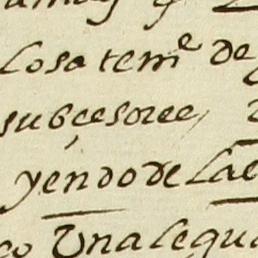 Losatemᵉ de
subçesoree,
yendo de Lae
Una legua